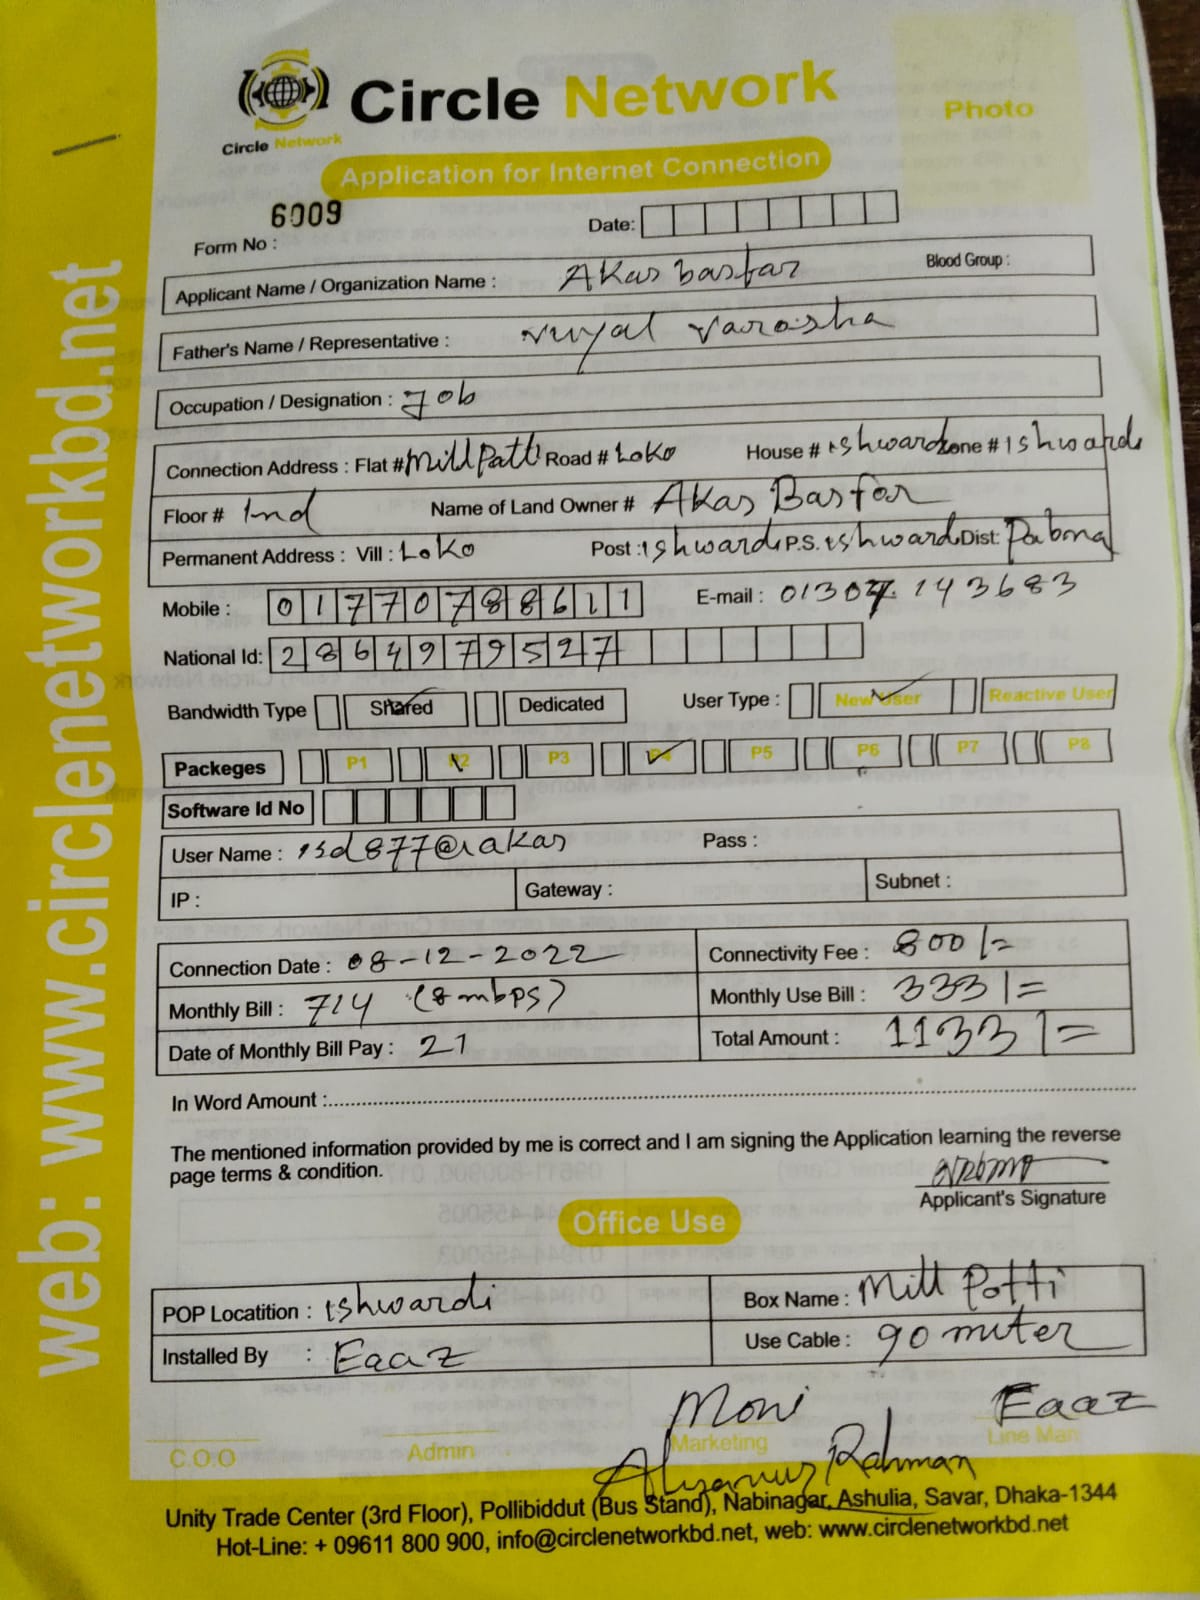 web: www.circlenetworkbd.net
Circle Network
Circle Network
Photo
Application for Internet Connection
6009
Form No :
Date:
Applicant Name / Organization Name : Akas basfar Blood Group :
Father's Name / Representative :
Occupation / Designation : Job
Connection Address : Flat # Mill Patti Road # Loko House # ishwardi Zone # Ishwardi
Floor # Name of Land Owner # Akas Basfor
Permanent Address : Vill : Loko Post : ishwardi P.S. ishwardi Dist: Pabna
Mobile : 01770788611 E-mail : 01307 143683
National Id: 2864979527
Bandwidth Type Shared Dedicated User Type : New User Reactive User
Packeges P1 P2 P3 P4 P5 P6 P7 P8
Software Id No
User Name : isd877@akas Pass :
IP : Gateway : Subnet :
Connection Date : 08-12-2022 Connectivity Fee : 800/=
Monthly Bill : 714 (8 mbps) Monthly Use Bill : 333/=
Date of Monthly Bill Pay : 21 Total Amount : 1133/=
In Word Amount :
The mentioned information provided by me is correct and I am signing the Application learning the reverse
page terms & condition.
Applicant's Signature
Office Use
POP Locatition : ishwardi Box Name : Mill Potti
Installed By : Eaaz Use Cable : 90 miter
Moni Eaaz
C.O.O Admin Marketing Line Man
Rahman
Unity Trade Center (3rd Floor), Pollibiddut (Bus Stand), Nabinagar, Ashulia, Savar, Dhaka-1344
Hot-Line: + 09611 800 900, info@circlenetworkbd.net, web: www.circlenetworkbd.net